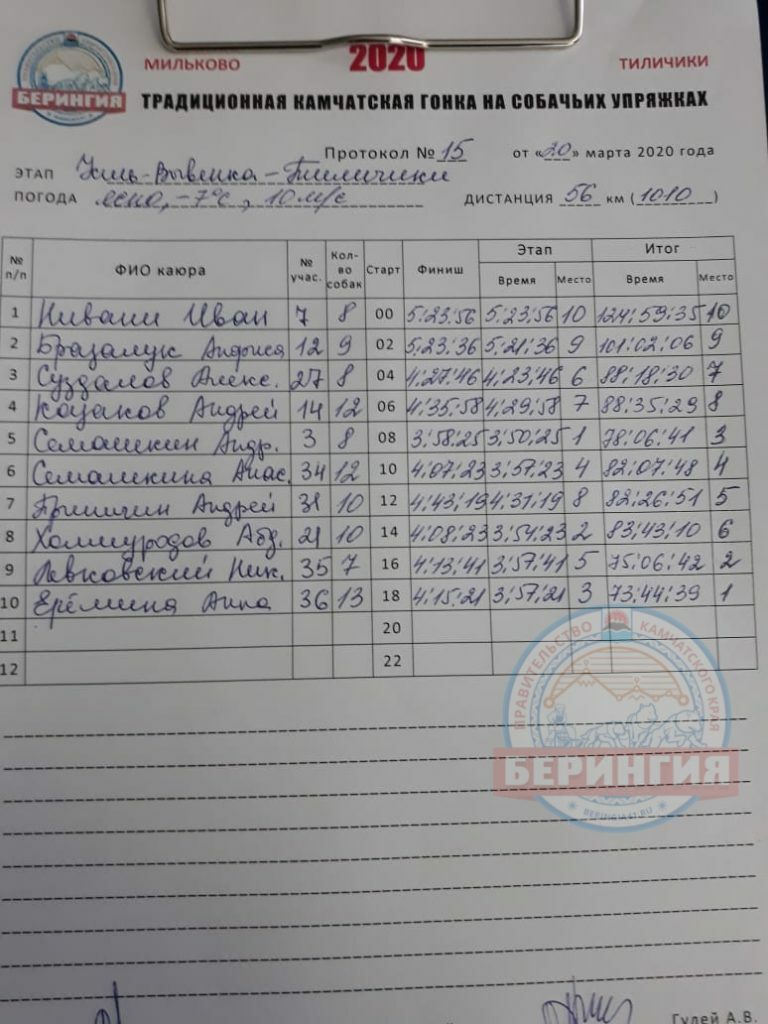 МИЛЬКОВО 2020 ТИЛИЧИКИ
БЕРИНГИЯ
ТРАДИЦИОННАЯ КАМЧАТСКАЯ ГОНКА НА СОБАЧЬИХ УПРЯЖКАХ
Протокол № 15 от «20» марта 2020 года
ЭТАП Усть-Вывенка - Тиличики
ПОГОДА ясно, -7°с, 10 м/с ДИСТАНЦИЯ 56 км (1010)
№ п/п ФИО каюра № учас. Кол-во собак Старт Финиш Этап Время Место Итог Время Место
1 Нивани Иван 7 8 00 5:23:56 5:23:56 10 124:59:35 10
2 Бразалук Андриса 12 9 02 5:23:36 5:21:36 9 101:02:06 9
3 Суздалов Алекс. 27 8 04 4:27:46 4:23:46 6 88:18:30 7
4 Казаков Андрей 14 12 06 4:35:58 4:29:58 7 88:35:29 8
5 Семашкин Андр. 3 8 08 3:58:25 3:50:25 1 78:06:41 3
6 Семашкина Анас. 34 12 10 4:07:23 3:57:23 4 82:07:48 4
7 Притчин Андрей 31 10 12 4:43:19 4:31:19 8 82:26:51 5
8 Холмуродов Абд. 21 10 14 4:08:23 3:54:23 2 83:43:10 6
9 Левковский Ник. 35 7 16 4:13:41 3:57:41 5 75:06:42 2
10 Ерёмина Анна 36 13 18 4:15:21 3:57:21 3 73:44:39 1
11 20
12 22
ПРАВИТЕЛЬСТВО КАМЧАТСКОГО КРАЯ
БЕРИНГИЯ
BERINGIA41.RU
Гулей А.В.